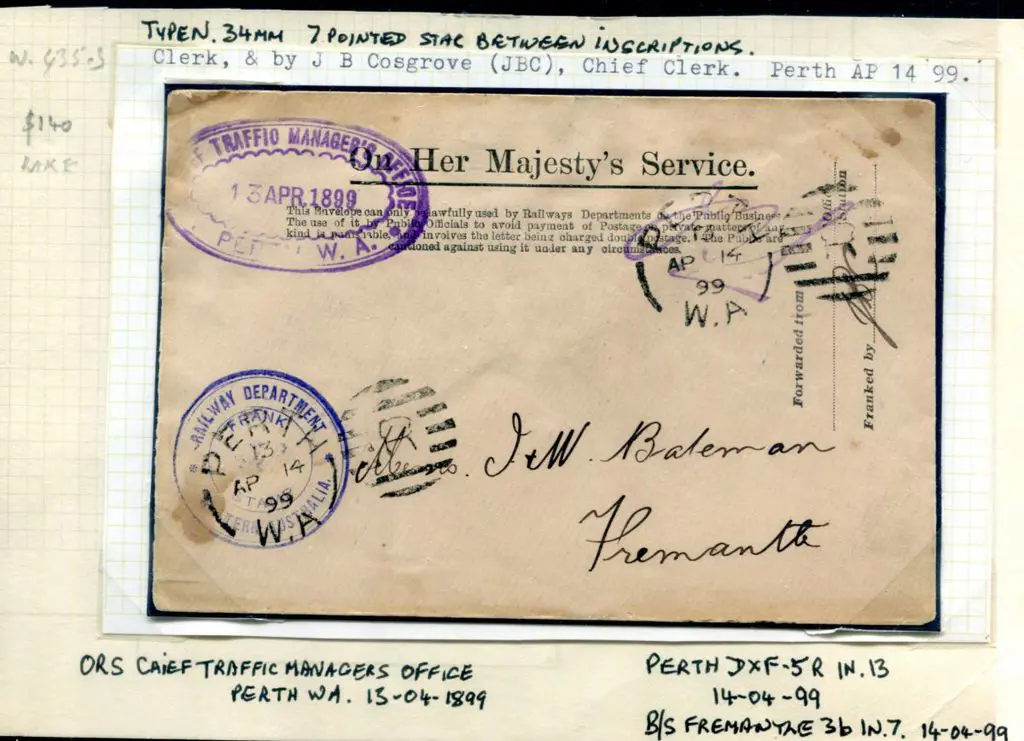 TYPE N. 34MM 7 POINTED STAR BETWEEN INSCRIPTIONS.
Clerk, & by J B Cosgrove (JBC), Chief Clerk. Perth AP 14 '99.
$140
TRAFFIC MANAGER'S OFFICE
13 APR. 1899
W. A.
On Her Majesty's Service.
This Envelope can only lawfully used by Railways Departments on the Public Business
The use of it by Public Officials to avoid payment of Postage private matters of any
kind is involves the letter being charged double postage. The Public are
cautioned against using it under any circumstances.
AP 14
99
W.A
Forwarded from
Station
Franked by
RAILWAY DEPARTMENT
FRANK
STAMP
PERTH
13
AP 14
99
W.A
Messrs. J & W. Bateman
Fremantle
ORS CHIEF TRAFFIC MANAGERS OFFICE
PERTH WA. 13-04-1899
PERTH DXF-5R IN.13
14-04-99
B/S FREMANTLE 3b IN.7. 14-04-99